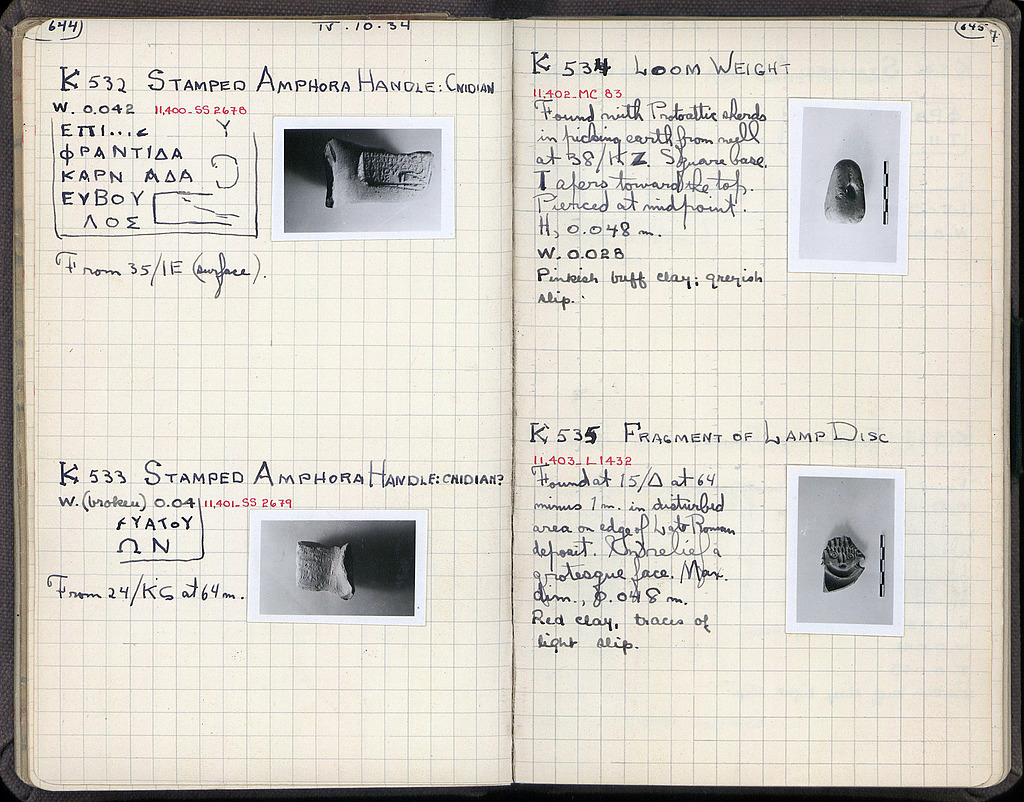 644
IV.10.34
K 532 STAMPED AMPHORA HANDLE: CNIDIAN
W. 0.042 11,400-SS 2678
ΕΠΙ...
Υ
ΦΡΑΝΤΙΔΑ
ΚΑΡΝ ΑΔΑ
ΕΥΒΟΥ
ΛΟΣ
From 35/ΙΕ (surface).
K 533 STAMPED AMPHORA HANDLE: CNIDIAN?
W. (broken) 0.04 11,401-SS 2679
ΥΑΤΟΥ
ΩΝ
From 24/ at 64 m.
645
K 534 LOOM WEIGHT
11,402-MC 83
Found with Protoattic sherds
in picking earth from well
at 38/ Square base.
Tapers toward the top.
Pierced at midpoint.
H, 0.048 m.
W. 0.028
Pinkish buff clay: greyish
slip.
K 535 FRAGMENT OF LAMP DISC
11,403-L 1432
Found at 15/Δ at 64
minus 1 m. in disturbed
area on edge of Late Roman
deposit. In relief a
grotesque face. Max.
dim., 0.048 m.
Red clay, traces of
light slip.